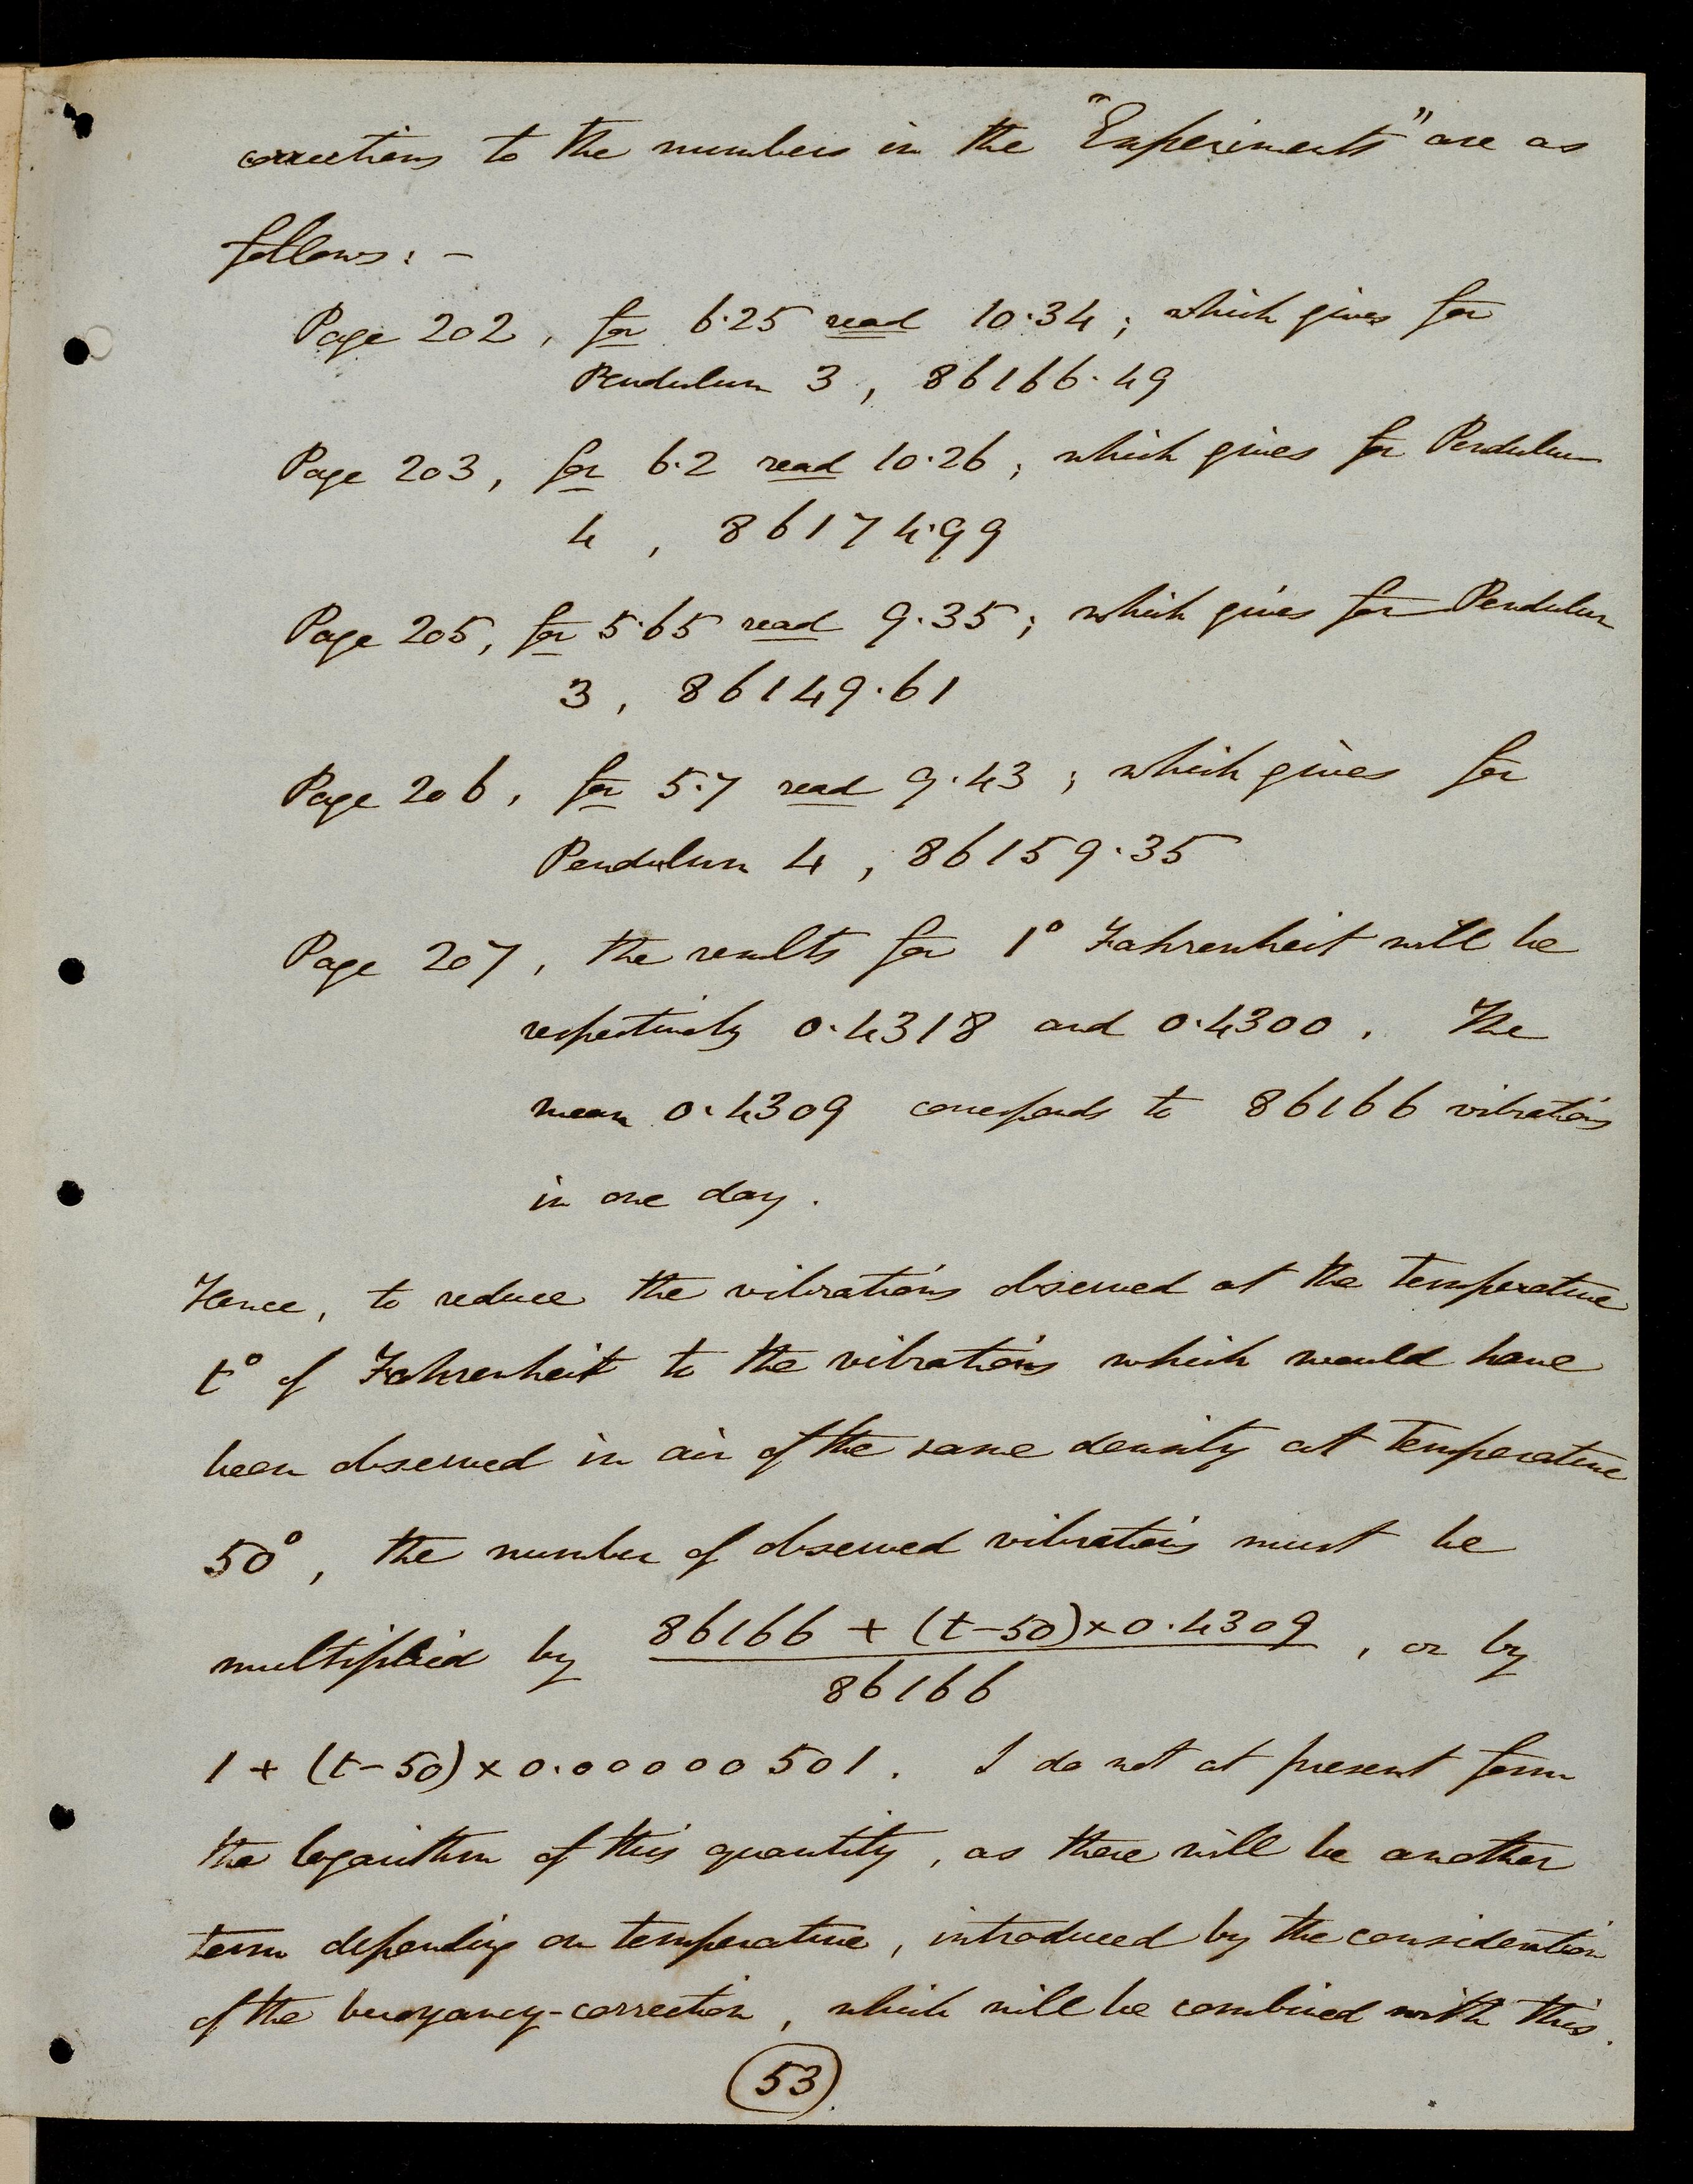 corrections to the numbers in the "Experiments" are as
follows: -
Page 202, for 6.25 read 10.34; which gives for
Pendulum 3, 86166.49
Page 203, for 6.2 read 10.26; which gives for Pendulum
4, 86174.99
Page 205, for 5.65 read 9.35; which gives for Pendulum
3, 86149.61
Page 206, for 5.7 read 9.43; which gives for
Pendulum 4, 86159.35
Page 207, the results for 1° Fahrenheit will be
respectively 0.4318 and 0.4300. The
mean 0.4309 corresponds to 86166 vibrations
in one day.
Hence, to reduce the vibrations observed at the temperature
t° of Fahrenheit to the vibrations which would have
been observed in air of the same density at temperature
50°, the number of observed vibrations must be
multiplied by 86166 + (t-50)×0.4309 / 86166, or by
1 + (t-50) × 0.00000501. I do not at present form
the logarithm of this quantity, as there will be another
term depending on temperature, introduced by the consideration
of the buoyancy-correction, which will be combined with this.
53